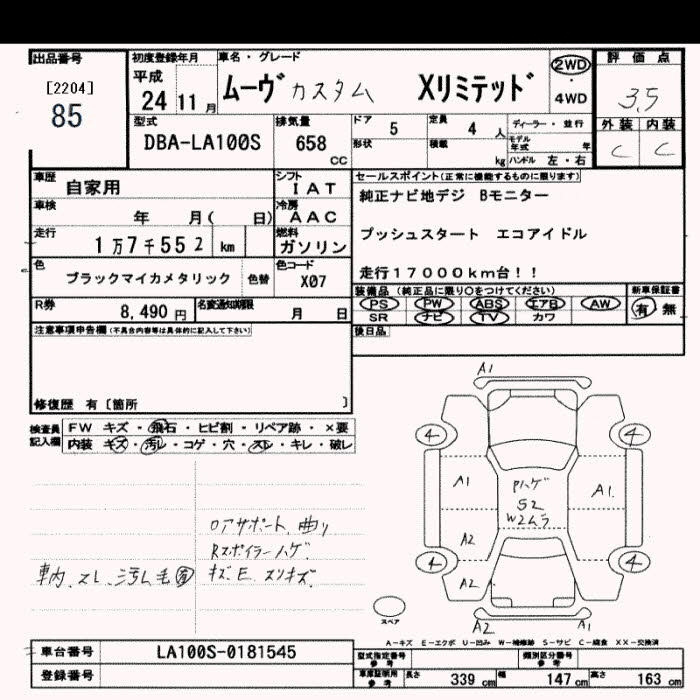 出品番号
[2204]
85
初度登録年月
平成
24 11 月
車名・グレード
ムーヴ カスタム Xリミテッド
2WD
・
4WD
評価点
3.5
外装 内装
C C
型式
DBA-LA100S
排気量
658
CC
ドア 5
定員 4 人
形状
積載 kg
ディーラー・並行
モデル年式 年
ハンドル 左・右
車歴 自家用
シフト IAT
車検 年 月( 日)
冷房 AAC
走行 1万7千552 km
燃料 ガソリン
色 ブラックマイカメタリック 色替
色コード X07
R券 8,490 円
名変通知期限 月 日
セールスポイント(正常に機能するものに限ります)
純正ナビ地デジ Bモニター
プッシュスタート エコアイドル
走行17000km台!!
装備品(純正品に限り○をつけてください)
PS PW ABS エアB AW
SR ナビ TV カワ
新車保証書
有・無
後日品
注意事項申告欄(不具合内容等は具体的に記入して下さい)
修復歴 有[箇所 ]
検査員記入欄
FW キズ・飛石・ヒビ割・リペア跡・×要
内装 キズ・汚レ・コゲ・穴・スレ・キレ・破レ
ロアサポート、曲り
Rスポイラーハゲ
キズ、E、スリキズ
車内、スレ、汚レ毛
A1
4 4
A1 A1
Pハゲ
S2
W2ムラ
A2
4 4
A2
A2 A1
スペア
A-キズ E-エクボ U-凹み W-補修跡 S-サビ C-腐食 XX-交換済
車台番号 LA100S-0181545
登録番号
型式指定番号 参考
類別区分番号 参考
車庫証明用 参考
長さ 339 cm 幅 147 cm 高さ 163 cm